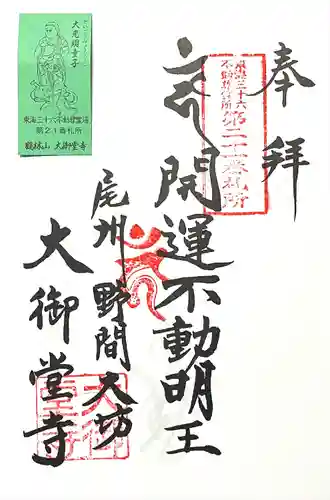 奉拝
東海三十六
不動尊霊場
第二十一番札所
開運不動明王
尾州 野間大坊
大御堂寺
大光明童子
東海三十六不動尊霊場
第21番札所
鶴林山 大御堂寺